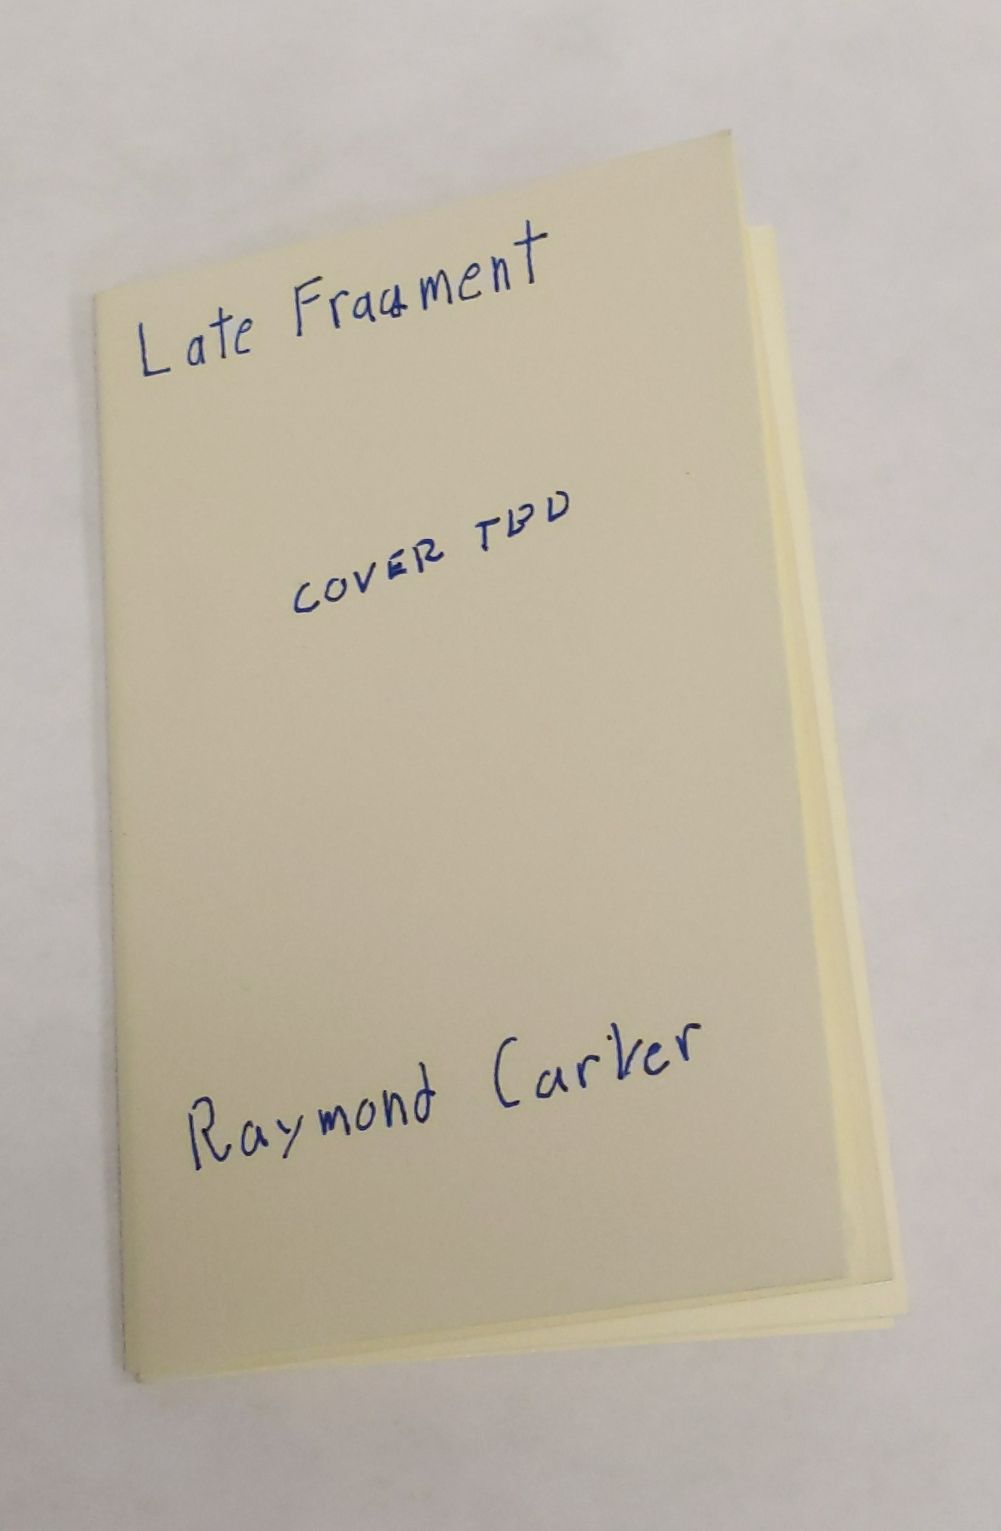 Late Fragment
COVER TBD
Raymond Carver